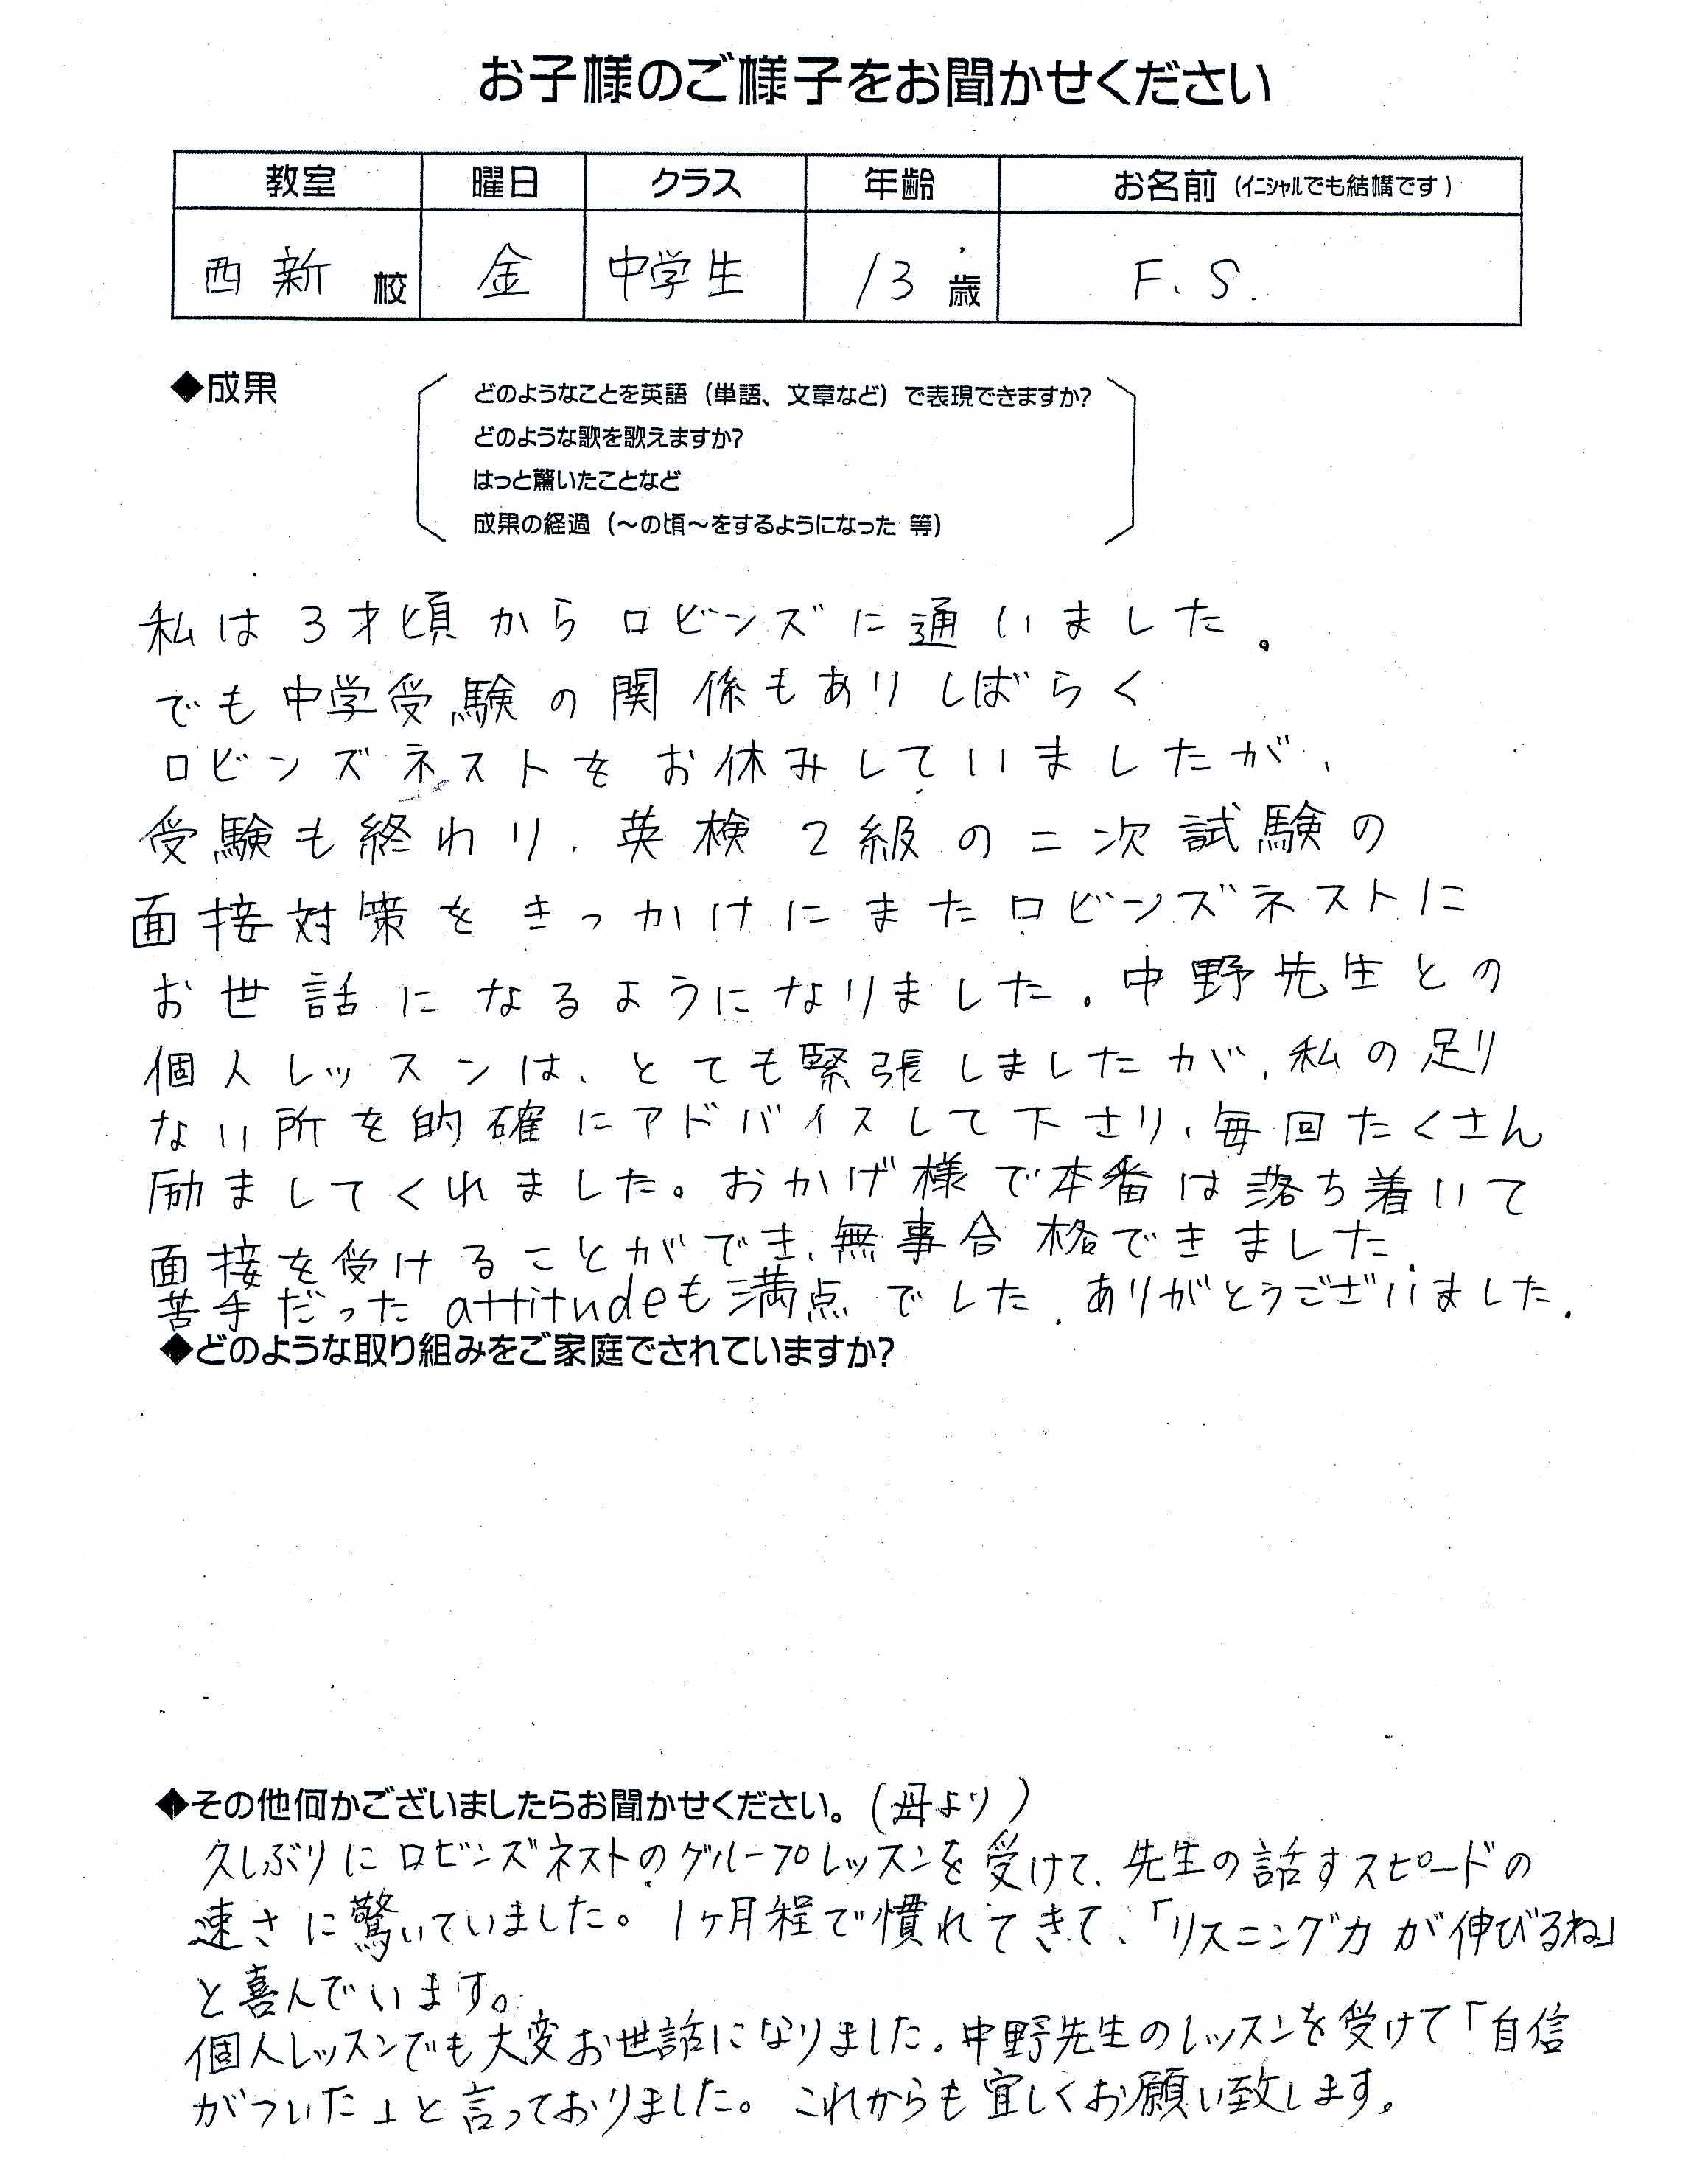 お子様のご様子をお聞かせください
教室 曜日 クラス 年齢 お名前（イニシャルでも結構です）
西新 校 金 中学生 13 歳 F.S.
◆成果
どのようなことを英語（単語、文章など）で表現できますか?
どのような歌を歌えますか?
はっと驚いたことなど
成果の経過（～の頃～をするようになった 等）
私は3才頃からロビンズに通いました。
でも中学受験の関係もありしばらく
ロビンズネストをお休みしていましたが、
受験も終わり、英検2級の二次試験の
面接対策をきっかけにまたロビンズネストに
お世話になるようになりました。中野先生との
個人レッスンは、とても緊張しましたが、私の足り
ない所を的確にアドバイスして下さり、毎回たくさん
励ましてくれました。おかげ様で本番は落ち着いて
面接を受けることができ、無事合格できました。
苦手だったattitudeも満点でした。ありがとうございました。
◆どのような取り組みをご家庭でされていますか?
◆その他何かございましたらお聞かせください。（母より）
久しぶりにロビンズネストのグループレッスンを受けて、先生の話すスピードの
速さに驚いていました。1ヶ月程で慣れてきて、「リスニング力が伸びるね」
と喜んでいます。
個人レッスンでも大変お世話になりました。中野先生のレッスンを受けて「自信
がついた」と言っておりました。これからも宜しくお願い致します。